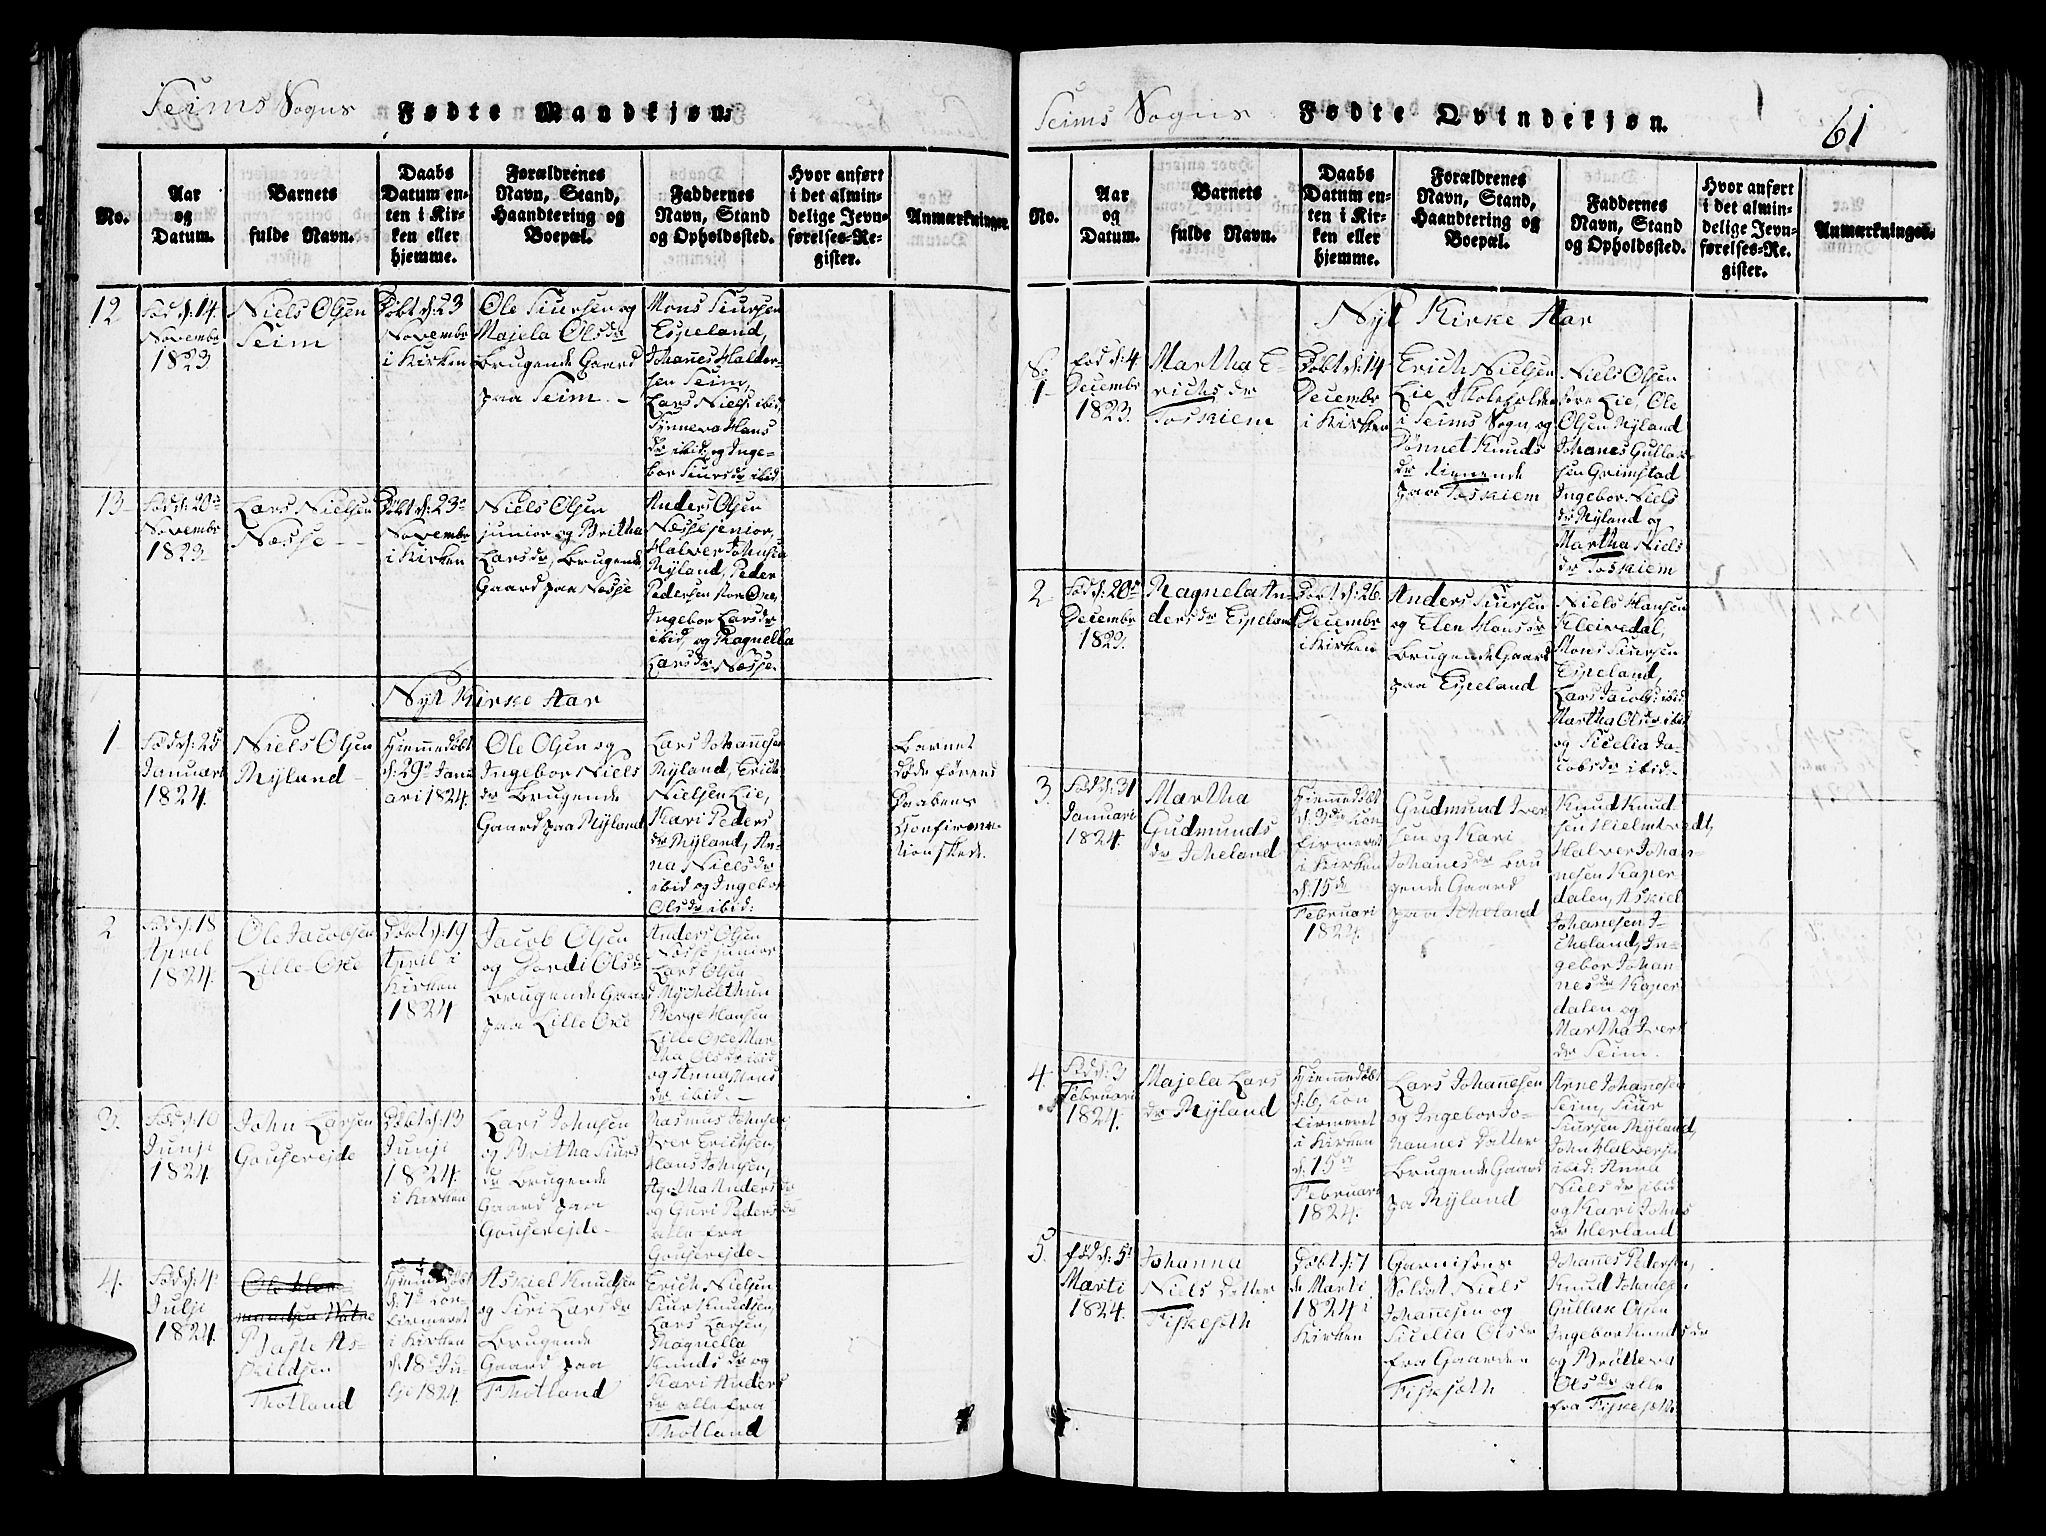 Seims Sogns Fødte Mandkjøn.
No.
Aar
og
Datum.
Barnets
fulde Navn.
Daabs
Datum en-
ten i Kir-
ken eller
hjemme.
Forældrenes
Navn, Stand,
Haandtering og
Boepæl.
Faddernes
Navn, Stand
og Opholdssted.
Hvor anført
i det almin-
delige Jevn-
førelses-Re-
gister.
Anmærkninger.
12
Fød d: 14
Novembr
1823
Niels Olsen
Seim
Døbt d: 23
Novembr
i Kirken
Ole Siursen og
Majela Olsdr
Brugende Gaard
paa Seim. –
Mons Siursen
Espeland,
Johanes Halder-
sen Seim,
Lars Niels: ibid,
Synneva Hans
dr ibid: og Inge-
bor Siursdr ibid
13
Fød d: 20de
Novembr
1823
Lars Nielsen
Næsse –
Døbt d: 23
Novembr
i Kirken
Niels Olsen
junior og Britha
Larsdr, Brugende
Gaard paa Næsse
Anders Olsen
Næsse senior,
Halver Johnsen
Myland, Peder
Pedersen stor Oxe,
Ingebor Larsdr
ibid, og Magnella
Larsdr Næsse.
Nyt Kirke Aar
1
Fød d: 25
Januari
1824.
Niels Olsen
Myland –
Hiemmedøbt
d: 29 Janu
ari 1824.
Ole Olsen og
Ingebor Niels
dr Brugende
Gaard paa Myland
Lars Johannesen
Myland, Erich
Nielsen Lie,
Kari Peders
dr Myland, An-
na Nielsdr
ibid og Ingebor
Olsdr ibid:
Barnet
døde førend
Daabens
Confirma-
tion skede.
2
Fød d: 18
April
1824.
Ole Jacobsen
Lille Oxe
Døbt d: 19
April i
Kirken
1824
Jacob Olsen
og Olsdr
Brugende Gaard
paa Lille Oxe
Anders Olsen
Næsse junior
Lars Olsen
Myhelthun
Berge Hansen
Lille Oxe Mar
tha Olsdr ibid
og Anna Mons
dr ibid. –
3.
Fød d: 10
Junji
1824.
John Larsen
Døbt d: 13
Junji
1824.
i Kirken
Lars Johnsen
og Britha Siurs
dr Brugende
Gaard paa
Rasmus Johnsen,
Iver Erichsen,
Hans Johnsen,
Agatha Andersdr
og Guri Pedersdr
alle fra
4.
Fød d: 4
Julji
1824.
As-
kildsen
Thotland
Hiemmedøbt
d: 7de con-
firmeret
i Kirken
d: 18 Ju-
lji 1824.
Askiel Knudsen
og Siri Larsdr
Brugende
Gaard paa
Thotland
Erich Nielsen
Siur Knudsen,
Lars Larsen,
Magnella
Knudsdr og
Kari Anders
dr alle fra
Thotland
Seims Sogns Fødte Qvindekjøn.
61
No.
Aar
og
Datum.
Barnets
fulde Navn.
Daabs
Datum en-
ten i Kir-
ken eller
hjemme.
Forældrenes
Navn, Stand,
Haandtering og
Boepæl.
Faddernes
Navn, Stand
og Opholdssted.
Hvor anført
i det almin-
delige Jevn-
førelses-Re-
gister.
Anmærkninger.
Nyt Kirke Aar
No
1
Fød d: 4
Decembr
1823.
Martha E-
richs dr
Foskiem
Døbt d: 14
Decembr
i Kirken
Erich Nielsen
Lie, Skoleholder
i Seims Sogn, og
Knuds
dr tienende
paa Foskiem
Niels Olsen
Lie, Ole
Olsen Myland
Johanes Gullac-
sen Grimstad
Ingebor Niels
dr Myland og
Martha Niels
dr Foskiem
2
Fød d: 20de
Decembr
1823.
Magnela An-
dersdr Espeland
Døbt d: 26
Decembr
i Kirken
Anders Siursen
og Elen Hansdr
Brugende Gaard
paa Espeland
Niels Hansen
Kleivedal,
Mons Siursen
Espeland,
Lars Jacobs: ibid
Martha Olsdr ibid
og Sicelia Ja-
cobsdr ibid –
3.
Fød d: 31
Januari
1824.
Martha
Gudmunds
dr Icheland
Hiemmedøbt
d: 3de con
firmeret
i Kirken
d: 15de
Februari
1824.
Gudmund Iver
sen og Kari
Johanesdr bru
gende Gaard
paa Icheland
Knud Knud
sen Hielmtvedt,
Halver Johan-
nesen Kaper
dalen, Askiel
Johanesen I-
cheland, In-
gebor Johan
nesdr Kaper
dalen og
Martha Ivers
dr Seim.
4.
Fød d: 3
Februari
1824.
Majela Lars
dr Myland
Hiemmedøbt
d: 6, con
firmeret
i Kirken
d: 15de
Februari
1824.
Lars Johanesen
og Ingebor Jo-
hannes datter
Brugende Gaard
pa Myland
Arne Johanesen
Seim, Siur
Siursen Myland,
John Halversen
ibid: Anna
Nielsdr ibid
og Kari Johns
dr Herland
5.
Fød d: 5t
Marti
1824.
Johanna
Niels datter
Fiskesæth
Døbt d: 7
de Marti
1824 i
Kirken
Garnisons
Soldat Niels
Johannesen og
Sicelia Olsdr
fra Gaarden
Fiskesæth.
Johanes Pedersen,
Knud Johanesen
Gullak Olsen
Ingebor Knudsdr
og
Olsdr alle
fra Fiskesæth.